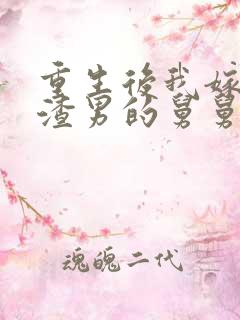 重生後我嫁
渣男的舅舅
魂魄二代